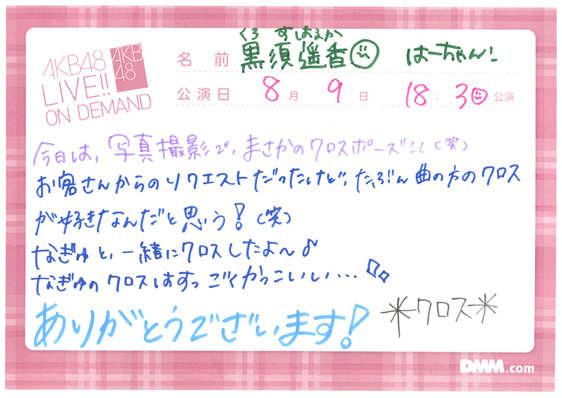 AKB48
LIVE!!
ON DEMAND
AKB
48
くろ すはるか
名前 黒須遥香 はーちゃん!
公演日 8月 9日 18:30公演
今日は、写真撮影で、まさかのクロスポーズ!!(笑)
お客さんからのリクエストだったけど、たぶん曲の方のクロス
が好きなんだと思う!(笑)
なぎゅと、一緒にクロスしたよ〜♪
なぎゅのクロスはすっごくかっこいい...
ありがとうございます! *クロス*
DMM.com